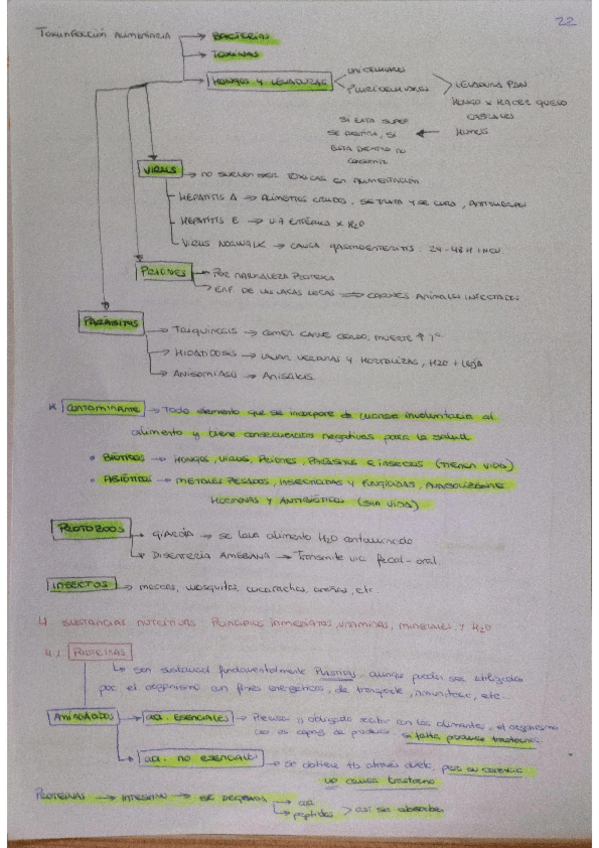 22
Toxiinfección alimentaria → BACTERIAS
→ TOXINAS
→ HONGOS Y LEVADURAS → UNICELULARES
PLURICELULARES → LEVADURA PAN
HONGO X HACER QUESO
CABRALES
HUMUS
SI ESTÁ SUPER
SE , SI
ESTÁ DENTRO NO
VIRALS → NO SUELEN SER TÓXICAS EN ALIMENTACIÓN
HEPATITIS A → ALIMENTOS CRUDOS, SE TRATA Y SE CURA,
HEPATITIS E → VÍA ENTÉRICA X H2O
VIRUS NORWALK → CAUSA GASTROENTERITIS. 24-48 H INCU.
PRIONES → POR NATURALEZA PROTEICA
→ ENF. DE LAS VACAS LOCAS ⇒ CARNES ANIMALES INFECTADOS
PARÁSITOS → TRIQUINOSIS → COMER CARNE CERDO, MUERTE ↑
→ HIDATIDOSIS → LAVAR VERDURAS Y HORTALIZAS, H2O + LEJÍA
→ ANISAKIS
* CONTAMINANTE → Todo elemento que se incorpore de manera involuntaria al
alimento y tiene consecuencias negativas para la salud
• BIÓTICOS → HONGOS, VIRUS, PRIONES, PARÁSITOS E INSECTOS (TIENEN VIDA)
• ABIÓTICOS → METALES PESADOS, INSECTICIDAS Y FUNGICIDAS, ANABOLIZANTES
HORMONAS Y ANTIBIÓTICOS (SIN VIDA)
PROTOZOOS → GIARDIA → se lava alimento H2O contaminado
→ DISENTERÍA AMEBIANA → Transmite vía fecal-oral.
INSECTOS → moscas, mosquitos, cucarachas, arañas, etc.
4. SUSTANCIAS NUTRITIVAS PRINCIPIOS INMEDIATOS, VITAMINAS, MINERALES, Y H2O
4.1 PROTEÍNAS
↳ son sustancias fundamentalmente PLÁSTICAS, aunque pueden ser utilizadas
por el organismo con fines energéticos, de transporte, inmunitario, etc.
AMINOÁCIDOS → aa. ESENCIALES → Precisan obligado con los alimentos, el organismo
no es capaz de producir, si falta produce trastorno
→ aa. NO ESENCIALES → se obtiene a través dieta, pero su carencia
NO causa trastorno
PROTEÍNAS → INTESTINO → SE DEGRADA → aa
→ peptidos > así se absorbe